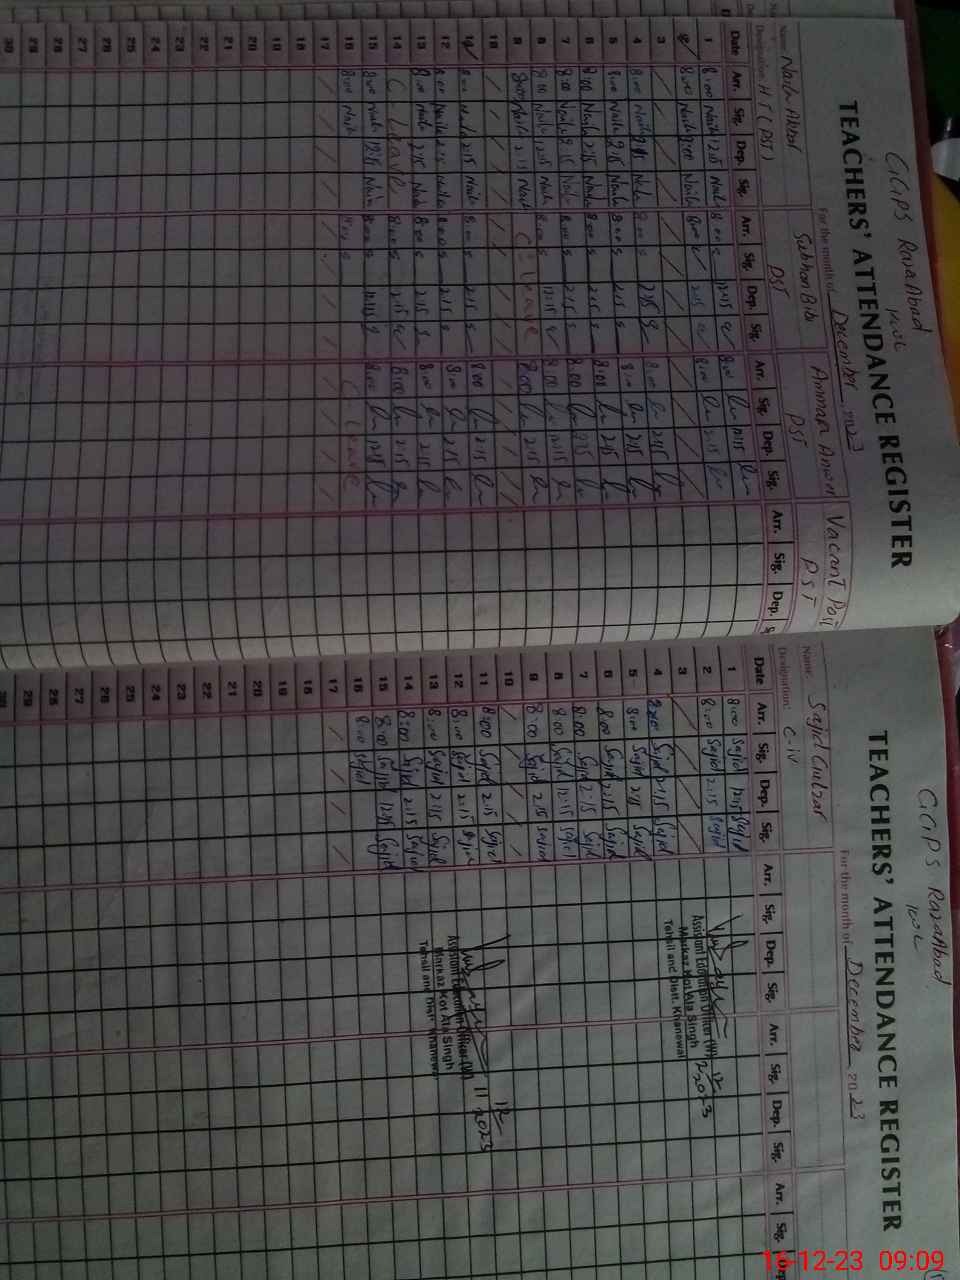 GGPS RazaAbad
KWL
TEACHERS' ATTENDANCE REGISTER
For the month of December 2023
Name: Naila Designation: H T (PST)
Subhan Bibi PST
Ammara Anwar PST
Vacant Post PST
Date Arr. Sig. Dep. Sig. Arr. Sig. Dep. Sig. Arr. Sig. Dep. Sig. Arr. Sig. Dep.
1 8:00 Naila 12:15 Naila 8:00 12:15 8:00 12:15
2 8:00 Naila 8:00 2:15 8:00 2:15
3
4 8:00 Naila Naila 8:00 2:15 8:00 2:15
5 8:00 Naila 2:15 Naila 8:00 2:15 8:00 2:15
6 8:00 Naila 2:15 Naila 8:00 2:15 8:00 2:15
7 8:00 Naila 2:15 Naila 8:00 2:15 8:00
8 8:00 Naila 12:15 Naila 8:00 12:15 8:00 12:15
9 8:00 Naila 2:15 Naila C-Leave 8:00 2:15
10
11 8:00 Naila 2:15 Naila 8:00 2:15 8:00 2:15
12 8:00 Naila 2:15 Naila 8:00 2:15 8:00 2:15
13 8:00 Naila 2:15 Naila 8:00 2:15 8:00 2:15
14 C-Leave 8:00 2:15 8:00 2:15
15 8:00 Naila 12:15 Naila 8:00 12:15 8:00 12:15
16 8:00 Naila 8:00 C-Leave
17
18
19
20
21
22
23
24
25
26
27
28
29
30
GGPS RazaAbad
KWL
TEACHERS' ATTENDANCE REGISTER
For the month of December 2023
Name: Sajid Gulzar
Designation: C-IV
Date Arr. Sig. Dep. Sig. Arr. Sig. Dep. Sig. Arr. Sig. Dep. Sig. Arr. Sig. Dep
1 8:00 Sajid 12:15 Sajid
2 8:00 Sajid 2:15 Sajid
3
4 8:00 Sajid 2:15 Sajid
5 8:00 Sajid 2:15 Sajid
6 8:00 Sajid 2:15 Sajid
7 8:00 Sajid 2:15 Sajid
8 8:00 Sajid 12:15 Sajid
9 8:00 Sajid 2:15 Sajid
10
11 8:00 Sajid 2:15 Sajid
12 8:00 Sajid 2:15 Sajid
13 8:00 Sajid 2:15 Sajid
14 8:00 Sajid 2:15 Sajid
15 8:00 Sajid 12:15 Sajid
16 8:00 Sajid
17
18
19
20
21
22
23
24
25
26
27
28
29
30
Assistant Education Officer (W)
Markaz Kot Ala Singh
Tehsil and Distt. Khanewal
2 12 2023
Assistant Education Officer (W)
Markaz Kot Ala Singh
Tehsil and Distt Khanewal
11 12 2023
16-12-23 09:09